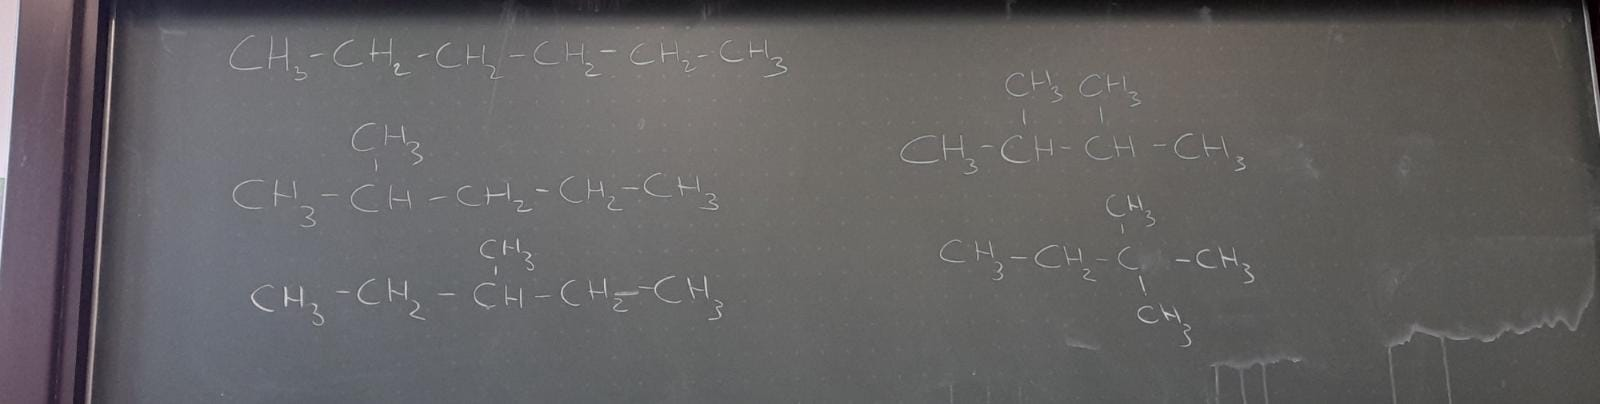 CH₃-CH₂-CH₂-CH₂-CH₂-CH₃
CH₃
CH₃-CH-CH₂-CH₂-CH₃
CH₃
CH₃-CH₂-CH-CH₂-CH₃
CH₃ CH₃
CH₃-CH-CH-CH₃
CH₃
CH₃-CH₂-C-CH₃
CH₃